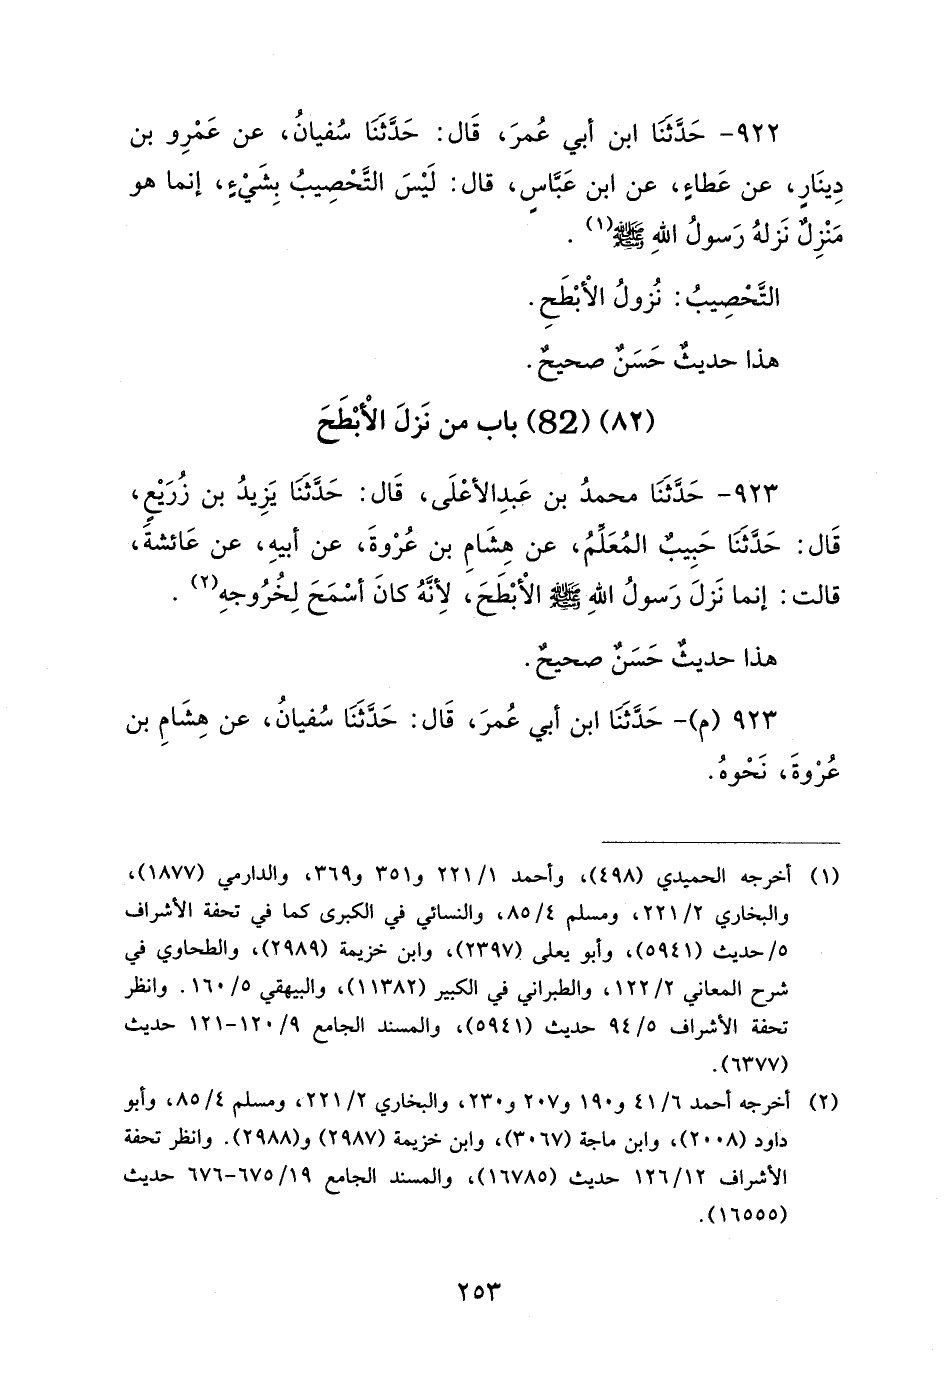 ٩٢٢- حَدَّثَنَا ابن أبي عُمرَ، قَال: حَدَّثَنَا سُفيانُ، عن عَمْرِو بن
دِينَارٍ، عن عَطاءٍ، عن ابن عَبَّاسٍ، قال: لَيْسَ التَّحْصِيبُ بِشَيْءٍ، إنما هو
مَنْزِلٌ نَزلهُ رَسولُ اللهِ ﷺ(١).
التَّحْصِيبُ: نُزولُ الأبْطَحِ.
هذا حديثٌ حَسَنٌ صحيحٌ.
(٨٢) (82) باب من نَزلَ الأبْطَحَ
٩٢٣- حَدَّثَنَا محمدُ بن عَبدِالأعْلَى، قَال: حَدَّثَنَا يَزِيدُ بن زُرَيْعٍ،
قَال: حَدَّثَنَا حَبِيبٌ المُعَلِّمُ، عن هِشَامِ بن عُرْوةَ، عن أبيهِ، عن عَائشةَ،
قالت: إنما نَزلَ رَسولُ اللهِ ﷺ الأبْطَحَ، لأنَّهُ كانَ أسْمَحَ لِخُرُوجِهِ(٢).
هذا حديثٌ حَسَنٌ صحيحٌ.
٩٢٣ (م)- حَدَّثَنَا ابن أبي عُمرَ، قَال: حَدَّثَنَا سُفيانُ، عن هِشَامِ بن
عُرْوةَ، نَحْوهُ.
(١) أخرجه الحميدي (٤٩٨)، وأحمد ٢٢١/١ و٣٥١ و٣٦٩، والدارمي (١٨٧٧)،
والبخاري ٢٢١/٢، ومسلم ٨٥/٤، والنسائي في الكبرى كما في تحفة الأشراف
٥/حديث (٥٩٤١)، وأبو يعلى (٢٣٩٧)، وابن خزيمة (٢٩٨٩)، والطحاوي في
شرح المعاني ١٢٢/٢، والطبراني في الكبير (١١٣٨٢)، والبيهقي ١٦٠/٥. وانظر
تحفة الأشراف ٩٤/٥ حديث (٥٩٤١)، والمسند الجامع ١٢٠/٩-١٢١ حديث
(٦٣٧٧).
(٢) أخرجه أحمد ٤١/٦ و١٩٠ و٢٠٧ و٢٣٠، والبخاري ٢٢١/٢، ومسلم ٨٥/٤، وأبو
داود (٢٠٠٨)، وابن ماجة (٣٠٦٧)، وابن خزيمة (٢٩٨٧) و(٢٩٨٨). وانظر تحفة
الأشراف ١٢٦/١٢ حديث (١٦٧٨٥)، والمسند الجامع ٦٧٥/١٩-٦٧٦ حديث
(١٦٥٥٥).
٢٥٣